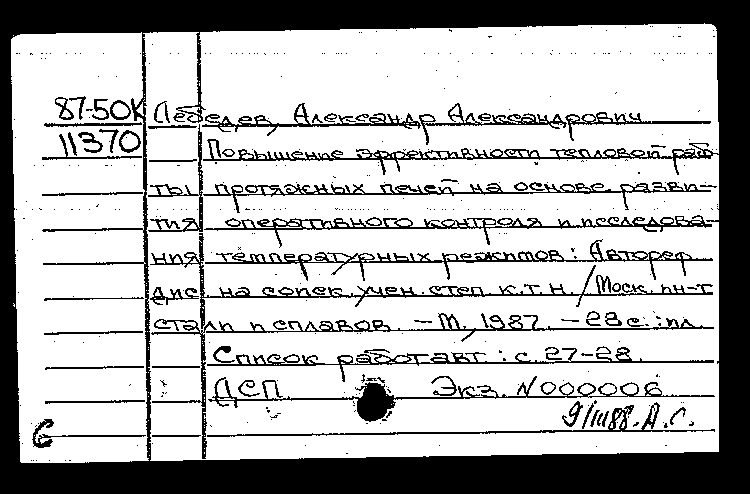 87-50К Лебедев, Александр Александрович
11370 Повышение эффективности тепловой рабо-
ты протяжных печей на основе разви-
тия оперативного контроля и исследова-
ния температурных режимов: Автореф.
дис. на соиск. учен. степ. к.т.н. / Моск. ин-т
стали и сплавов. – М., 1987. – 28 с.: ил.
Список работ авт.: с. 27-28.
ДСП Экз. N 000006
9/III 88. А.С.